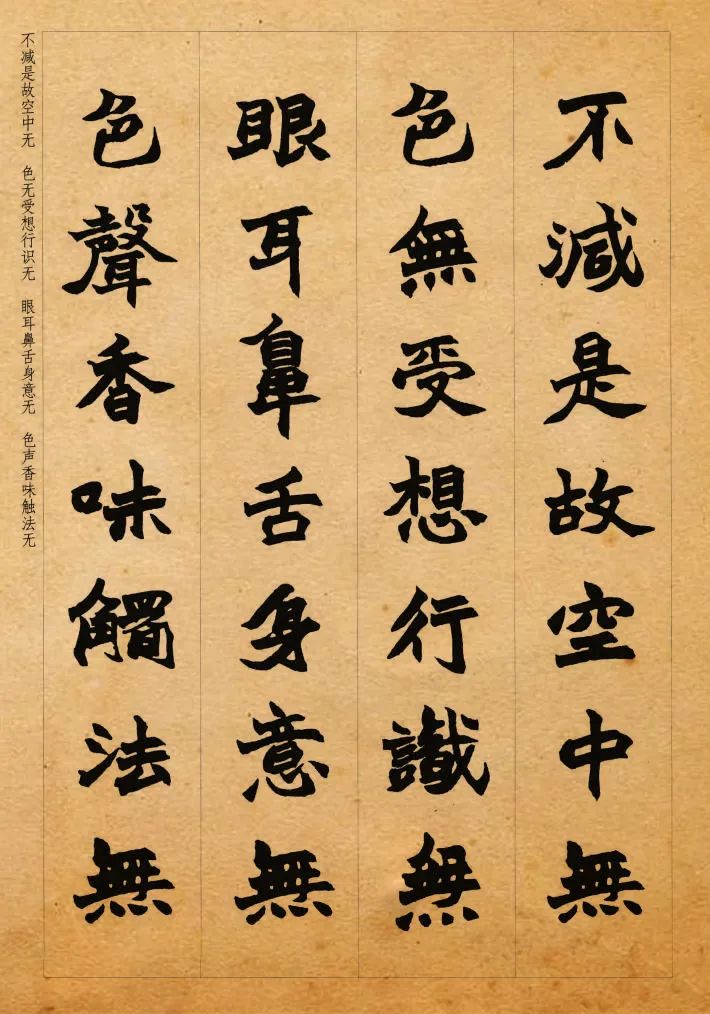 不減是故空中無
色無受想行識無
眼耳鼻舌身意無
色聲香味觸法無
不减是故空中无 色无受想行识无 眼耳鼻舌身意无 色声香味触法无